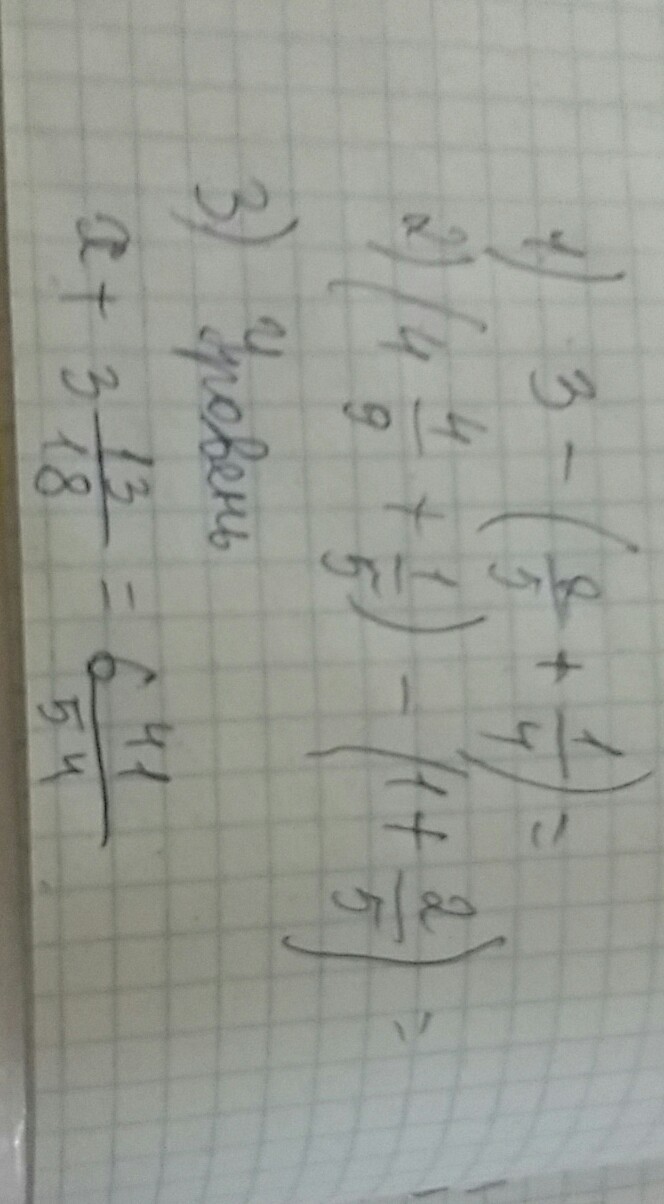 1) 3 - (2/5 + 1/4) =
2) (4 4/9 + 1/5) - (1 + 2/5) =
3) Уровень
x + 3 13/18 = 6 41/54